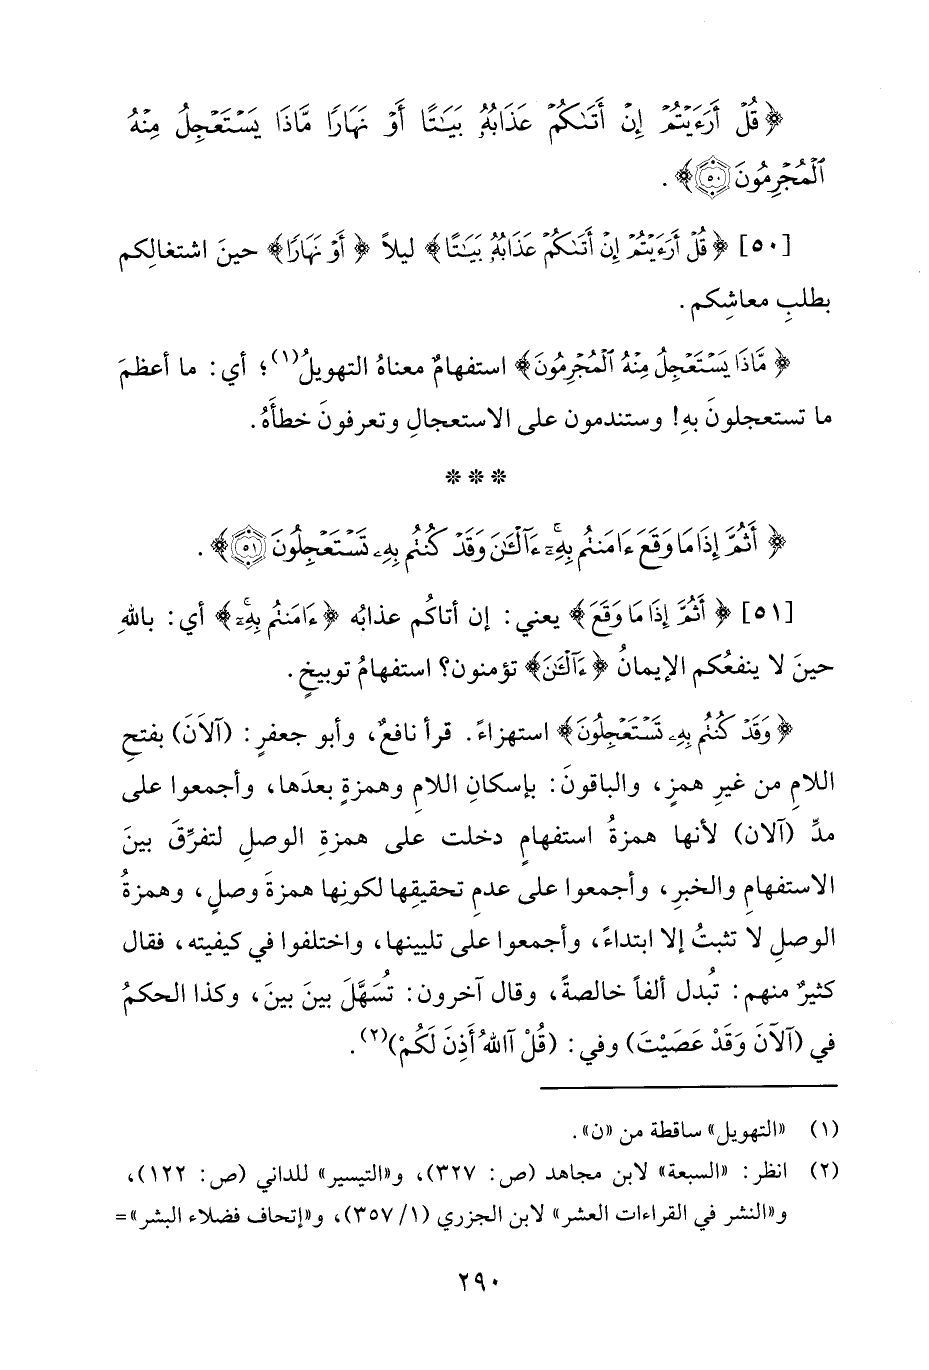 ﴿قُلْ أَرَءَيْتُمْ إِنْ أَتَىٰكُمْ عَذَابُهُۥ بَيَـٰتًا أَوْ نَهَارًا مَّاذَا يَسْتَعْجِلُ مِنْهُ
ٱلْمُجْرِمُونَ ۝٥٠﴾ .
[٥٠] ﴿قُلْ أَرَءَيْتُمْ إِنْ أَتَىٰكُمْ عَذَابُهُۥ بَيَـٰتًا﴾ ليلاً ﴿أَوْ نَهَارًا﴾ حينَ اشتغالِكم
بطلبِ معاشِكم .
﴿مَّاذَا يَسْتَعْجِلُ مِنْهُ ٱلْمُجْرِمُونَ﴾ استفهامٌ معناهُ التهويلُ(١)؛ أي: ما أعظمَ
ما تستعجلونَ بهِ! وستندمون على الاستعجالِ وتعرفونَ خطأَهُ.
* * *
﴿أَثُمَّ إِذَا مَا وَقَعَ ءَامَنتُم بِهِۦٓ ۚ ءَآلْـَٔـٰنَ وَقَدْ كُنتُم بِهِۦ تَسْتَعْجِلُونَ ۝٥١﴾ .
[٥١] ﴿أَثُمَّ إِذَا مَا وَقَعَ﴾ يعني: إن أتاكُم عذابُه ﴿ءَامَنتُم بِهِۦٓ ۚ﴾ أي: باللهِ
حينَ لا ينفعُكم الإيمانُ ﴿ءَآلْـَٔـٰنَ﴾ تؤمنون؟ استفهامُ توبيخٍ.
﴿وَقَدْ كُنتُم بِهِۦ تَسْتَعْجِلُونَ﴾ استهزاءً. قرأ نافعٌ، وأبو جعفرٍ: (آلَانَ) بفتحِ
اللامِ من غيرِ همزٍ، والباقونَ: بإسكانِ اللامِ وهمزةٍ بعدَها، وأجمعوا على
مدِّ (آلان) لأنها همزةُ استفهامٍ دخلت على همزةِ الوصلِ لتفرِّقَ بينَ
الاستفهامِ والخبرِ، وأجمعوا على عدمِ تحقيقِها لكونِها همزةَ وصلٍ، وهمزةُ
الوصلِ لا تثبتُ إلا ابتداءً، وأجمعوا على تليينها، واختلفوا في كيفيته، فقال
كثيرٌ منهم: تُبدل ألفاً خالصةً، وقال آخرون: تُسَهَّلَ بينَ بينَ، وكذا الحكمُ
في (آلآنَ وَقَدْ عَصَيْتَ) وفي: (قُلْ آاللهُ أَذِنَ لَكُمْ)(٢).
(١) «التهويل» ساقطة من «ن».
(٢) انظر: «السبعة» لابن مجاهد (ص: ٣٢٧)، و«التيسير» للداني (ص: ١٢٢)،
و«النشر في القراءات العشر» لابن الجزري (١/ ٣٥٧)، و«إتحاف فضلاء البشر»=
٢٩٠